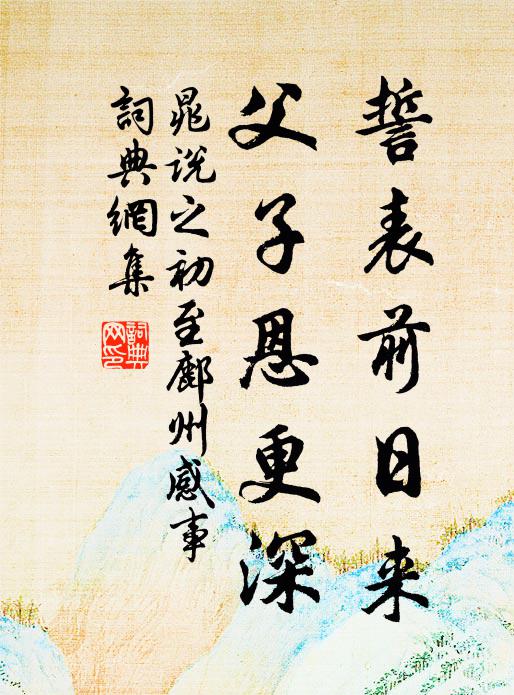 誓表前日来
父子恩更深
晁说之初至鄜州感事
詞典網集
詞典網印